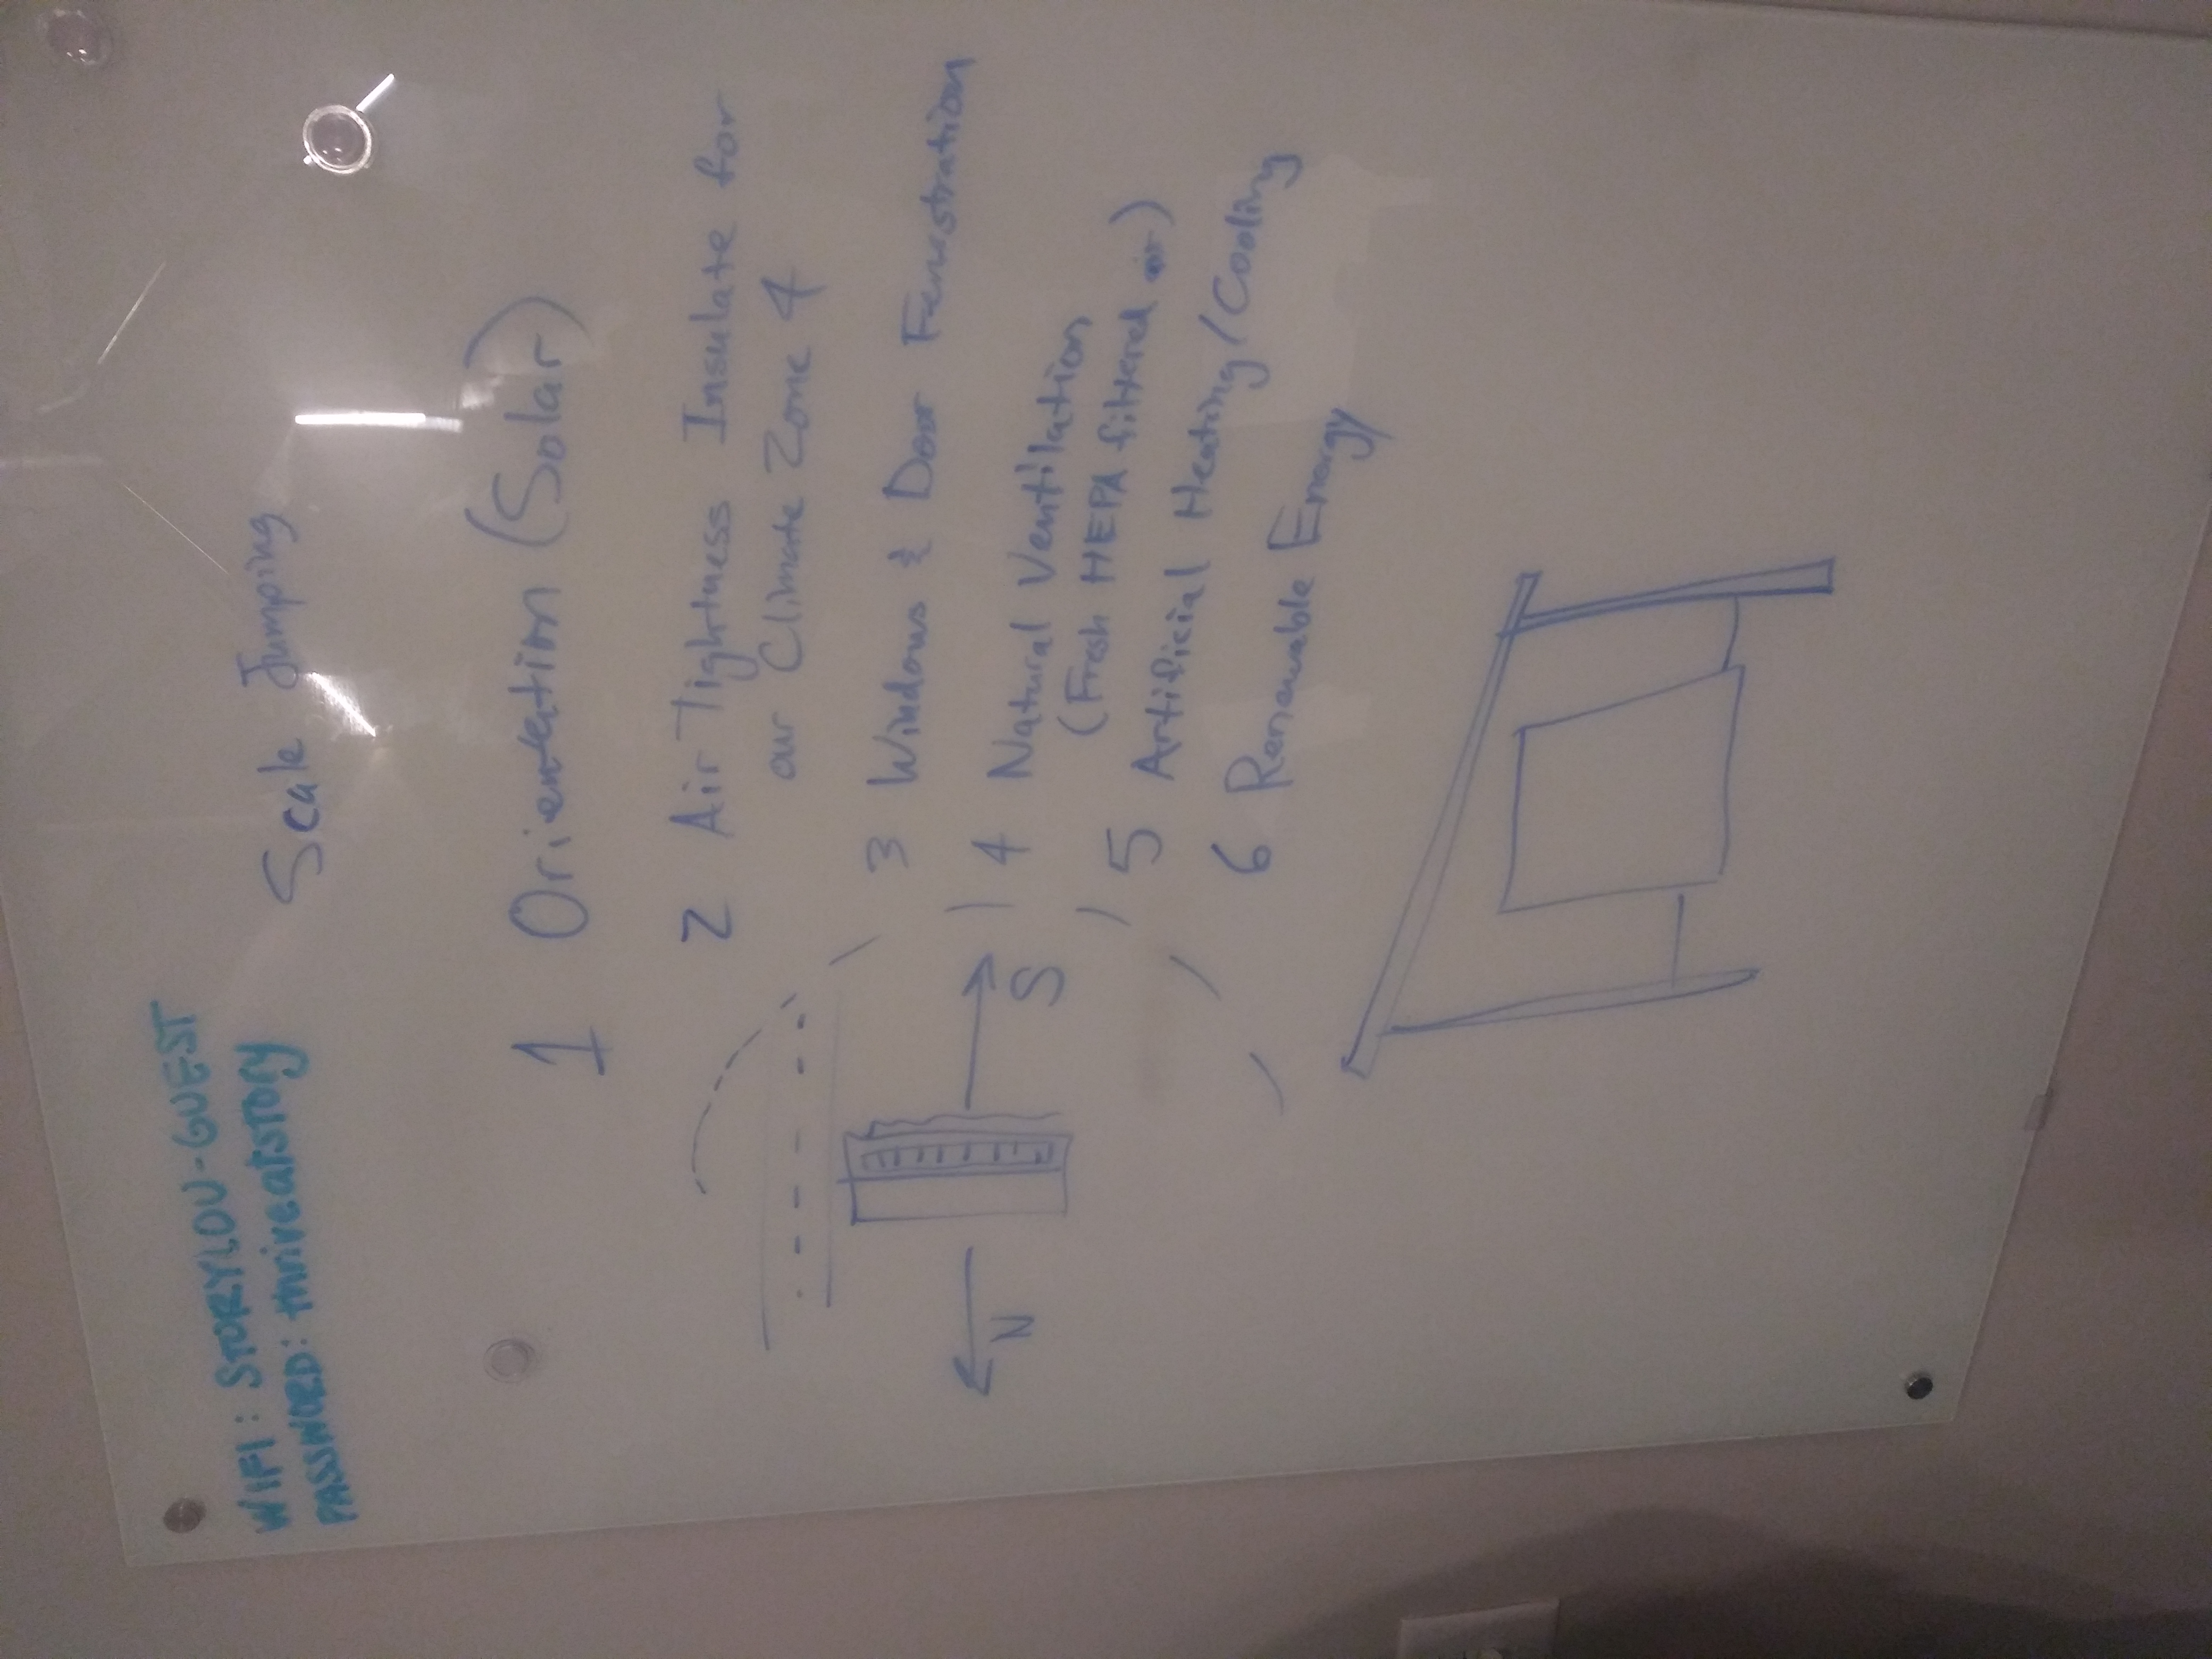 WIFI: STORYLOU-GUEST
PASSWORD: thriveatstory
Scale Jumping
1 Orientation (Solar)
2 Air Tightness Insulate for
our Climate Zone 4
3 Windows & Door Fenustration
4 Natural Ventilation
(Fresh HEPA filtered air)
5 Artificial Heating/Cooling
6 Renewable Energy
N
S